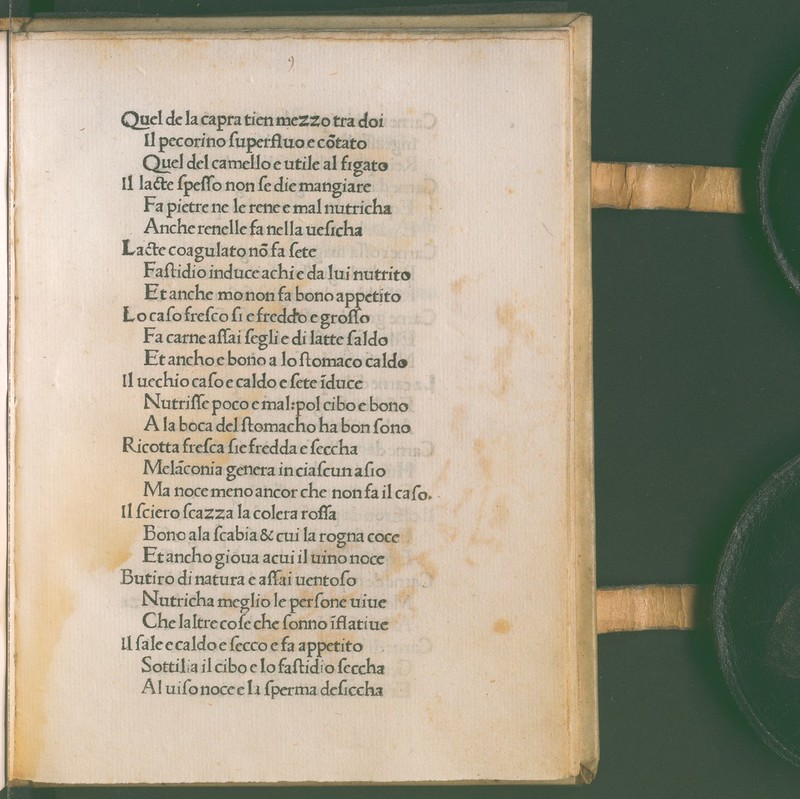 9
Quel de la capra tien mezzo tra doi
Il pecorino ſuperfluo e cõtato
Quel del camello e utile al figato
Il lacte ſpeſſo non ſe die mangiare
Fa pietre ne le rene e mal nutricha
Anche renelle fa nella ueſicha
Lacte coagulato nõ fa ſete
Faſtidio induce achi e da lui nutrito
Et anche mo non fa bono appetito
Lo caſo freſco ſi e freddo e groſſo
Fa carne aſſai ſegli e di latte ſaldo
Et ancho e bono a lo ſtomaco caldo
Il uecchio caſo e caldo e ſete īduce
Nutriſſe poco e mal:pol cibo e bono
A la boca del ſtomacho ha bon ſono
Ricotta freſca ſie fredda e ſeccha
Melãconia genera in ciaſcun aſio
Ma noce meno ancor che non fa il caſo.
Il ſciero ſcazza la colera roſſa
Bono ala ſcabia & cui la rogna coce
Et ancho gioua acui il uino noce
Butiro di natura e aſſai uentoſo
Nutricha meglio le perſone uiue
Che laltre coſe che ſonno īflatiue
Il ſale e caldo e ſecco e fa appetito
Sottilia il cibo e lo faſtidio ſeccha
Al uiſo noce e la ſperma deſiccha